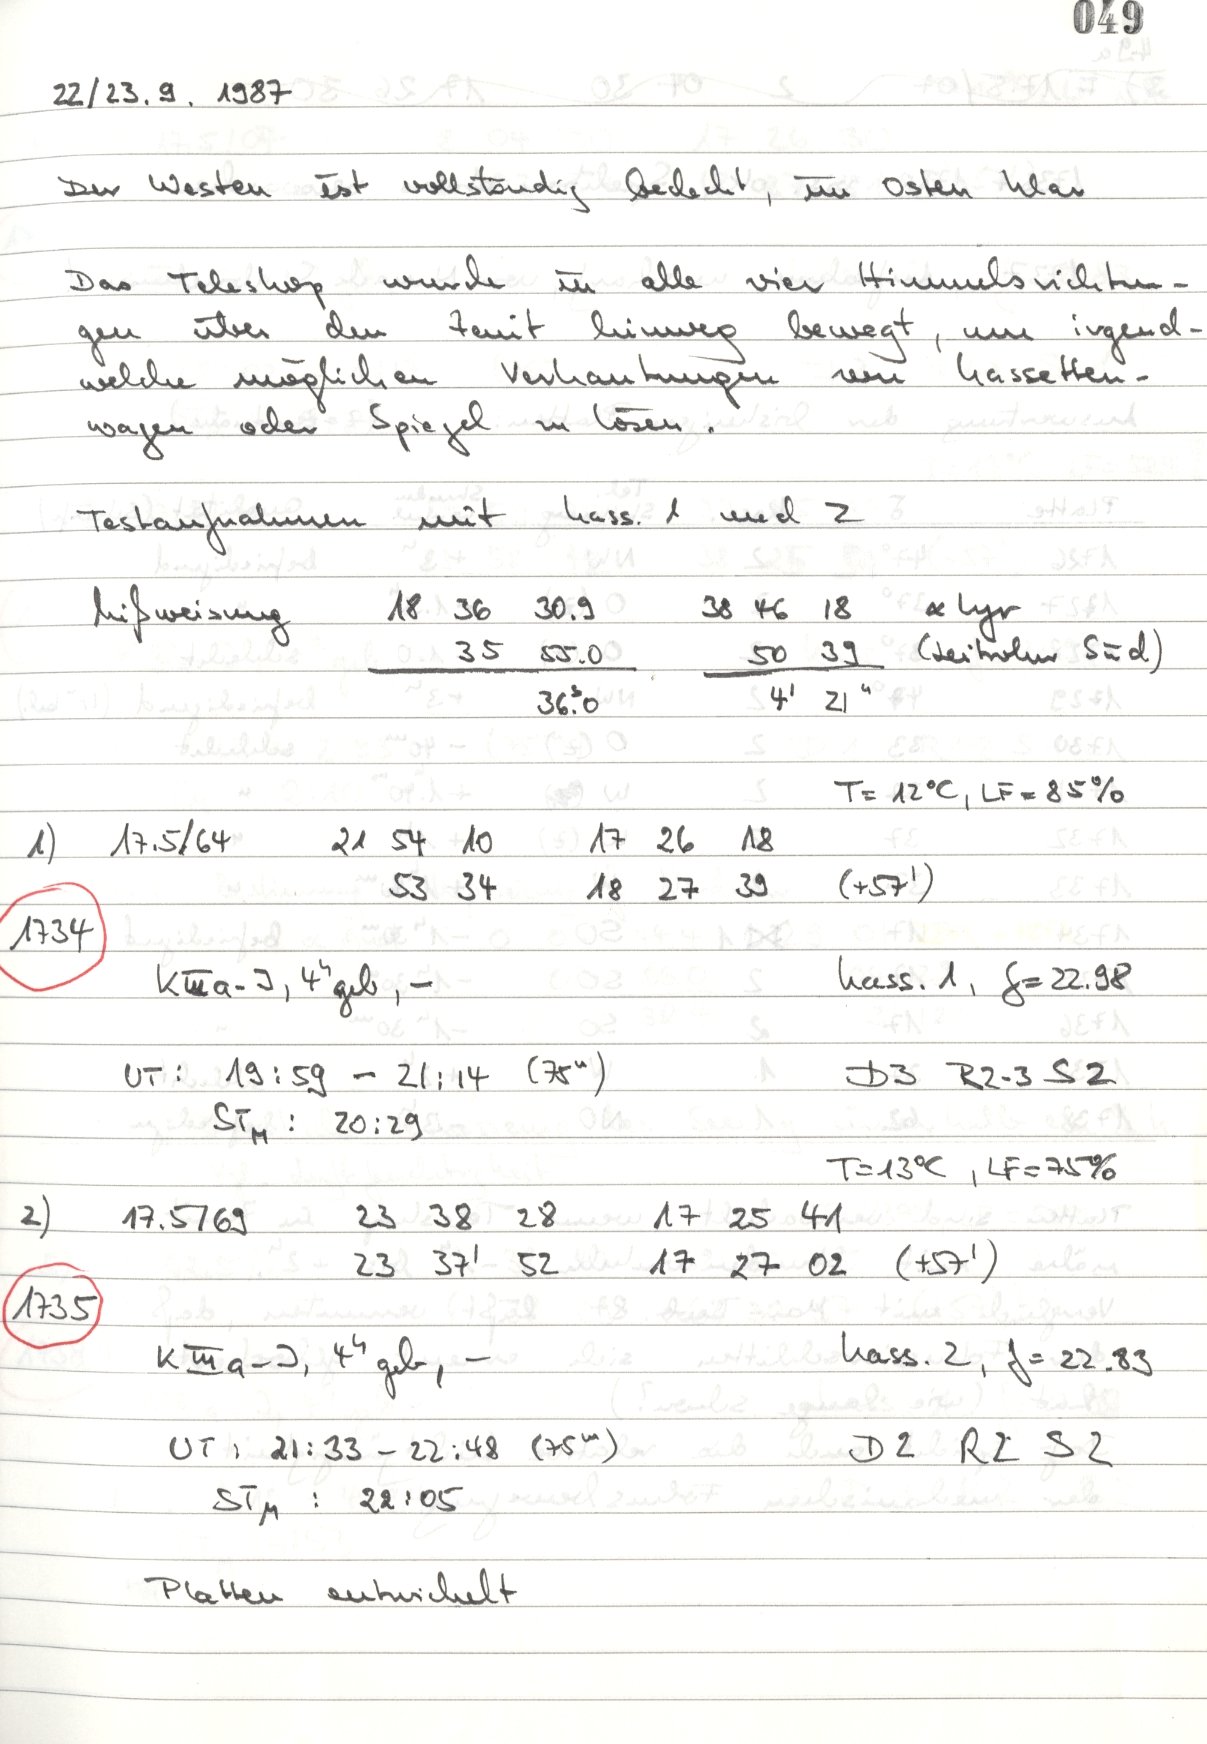 049
22/23.9. 1987
Der Westen ist vollständig bedeckt, im Osten klar
Das Teleskop wurde in alle vier Himmelsrichtun-
gen über den Zenit hinweg bewegt, um irgend-
welche möglichen Verhankungen von Kassetten-
wagen oder Spiegel zu lösen.
Testaufnahmen mit Kass. 1 und 2
Mißweisung 18 36 30.9 38 46 18 α Lyr
35 55.0 50 39 (Leitrohr Süd)
36.ˢ0 4' 21"
T = 12°C, LF = 85%
1) 17.5/64 21 54 10 17 26 18
53 34 18 27 39 (+57')
1734
K III a-J, 4ʰ geb, - Kass. 1, f = 22.98
UT: 19:59 - 21:14 (75ᵐ) D3 R2-3 S2
STM : 20:29
T = 13°C, LF = 75%
2) 17.5/69 23 38 28 17 25 41
23 37' 52 17 27 02 (+57')
1735
K III a-J, 4ʰ geb, - Kass. 2, f = 22.83
UT: 21:33 - 22:48 (75ᵐ) D2 R2 S2
STM : 22:05
Platten entwickelt